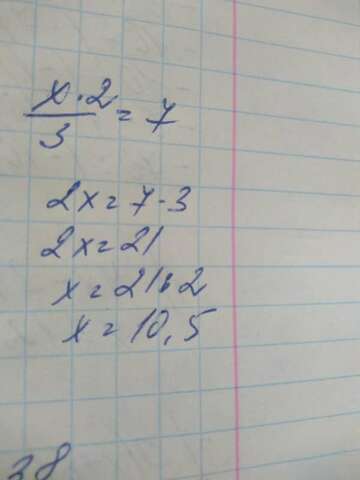 x·2
3 = 7
2x = 7·3
2x = 21
x = 21:2
x = 10,5
38